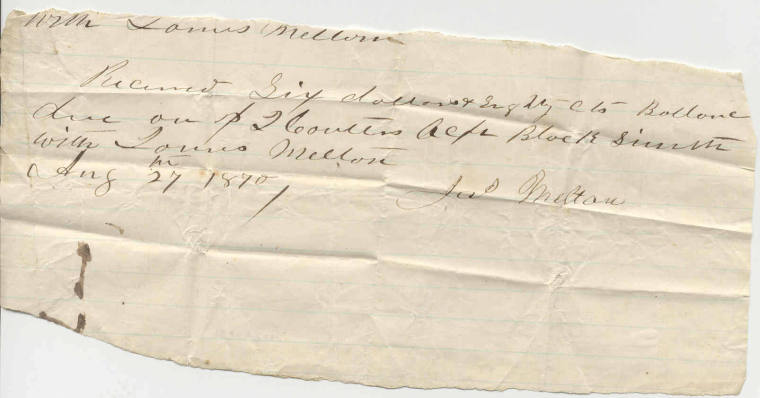 with Louis Melton
Received Six dollars & Eighty cts Ballance
due on Acpt Black Smith
with Louis Melton
Aug 27th 1870
Jas Melton